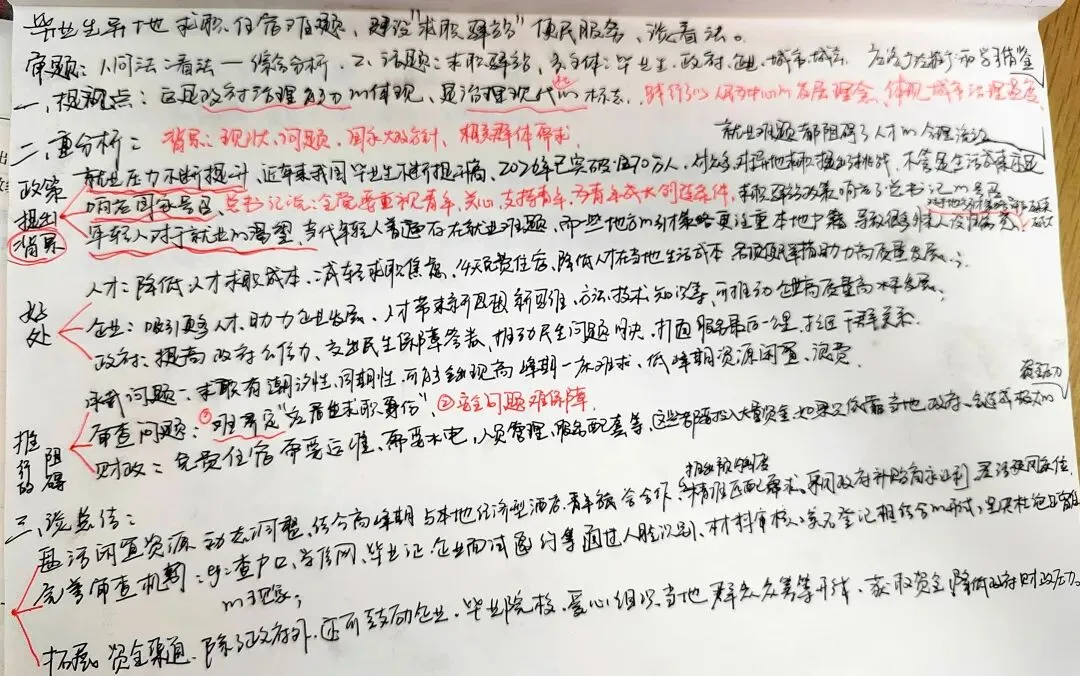 毕业生异地求职、住宿难题,建设“求职驿站”便民服务,谈看法。
审题:1.问法:看法—综合分析。2.话题:求职驿站,多主体:毕业生、政府、企业、城市
一、提观点:这是政府治理能力的体现、是治理现代化的标志,践行了以人民为中心的发展理念,体现城市治理温度
二、重分析: 背景:现状、问题,国家大政方针,相关群体需求
就业难题都阻碍了人才的合理流动
政策提出背景
就业压力不断提升,近年来我国毕业生不断提升高,2026年已突破1270万人
响应国家号召,总书记说:全党要重视青年,关心、支持青年,为青年成大创造条件,求职驿站政策响应了总书记的号召
年轻人对于就业的渴望,当代年轻人普遍存在就业难题,而一些地方的计策略更注重本地户籍,导致很多外来人
好处
人才:降低人才求职成本,减轻求职焦虑,免费住宿,降低人才在当地生活成本,助力高质量发展
企业:吸引更多人才,助力企业发展,人才带来新思想新思维、方法、技术、知识等,可推动企业高质量高水平发展;
政府:提高政府公信力,交出民生保障答卷,推动民生问题解决,打通服务最后一公里,拉近干群关系.
推行的阻碍
承载问题:求职有潮汐性,周期性,可能出现高峰期一床难求,低峰期资源闲置、浪费
资金压力
审查问题:①难界定“应届生求职身份”,②安全问题难保障
财政:免费住宿需要运维,需要水电,人员管理,服务配套等,这些都要投入大量资金,如果只依靠当地政府,会造成极大的
三、谈总结:
盘活闲置资源 动态调整,结合高峰期与本地经济型酒店、青年旅舍合作,精准匹配需求,采用政府补贴商家让利
完善审查机制:eg:查户口、学信网、毕业证、企业面试邀约等,通过人脸识别、材料审核、实名登记相结合的形式,坚决杜绝
的现象;
拓展资金渠道,除了政府外,还可鼓励企业、毕业院校、爱心组织、当地群众众筹等形式,获取资金,降低政府财政压力。